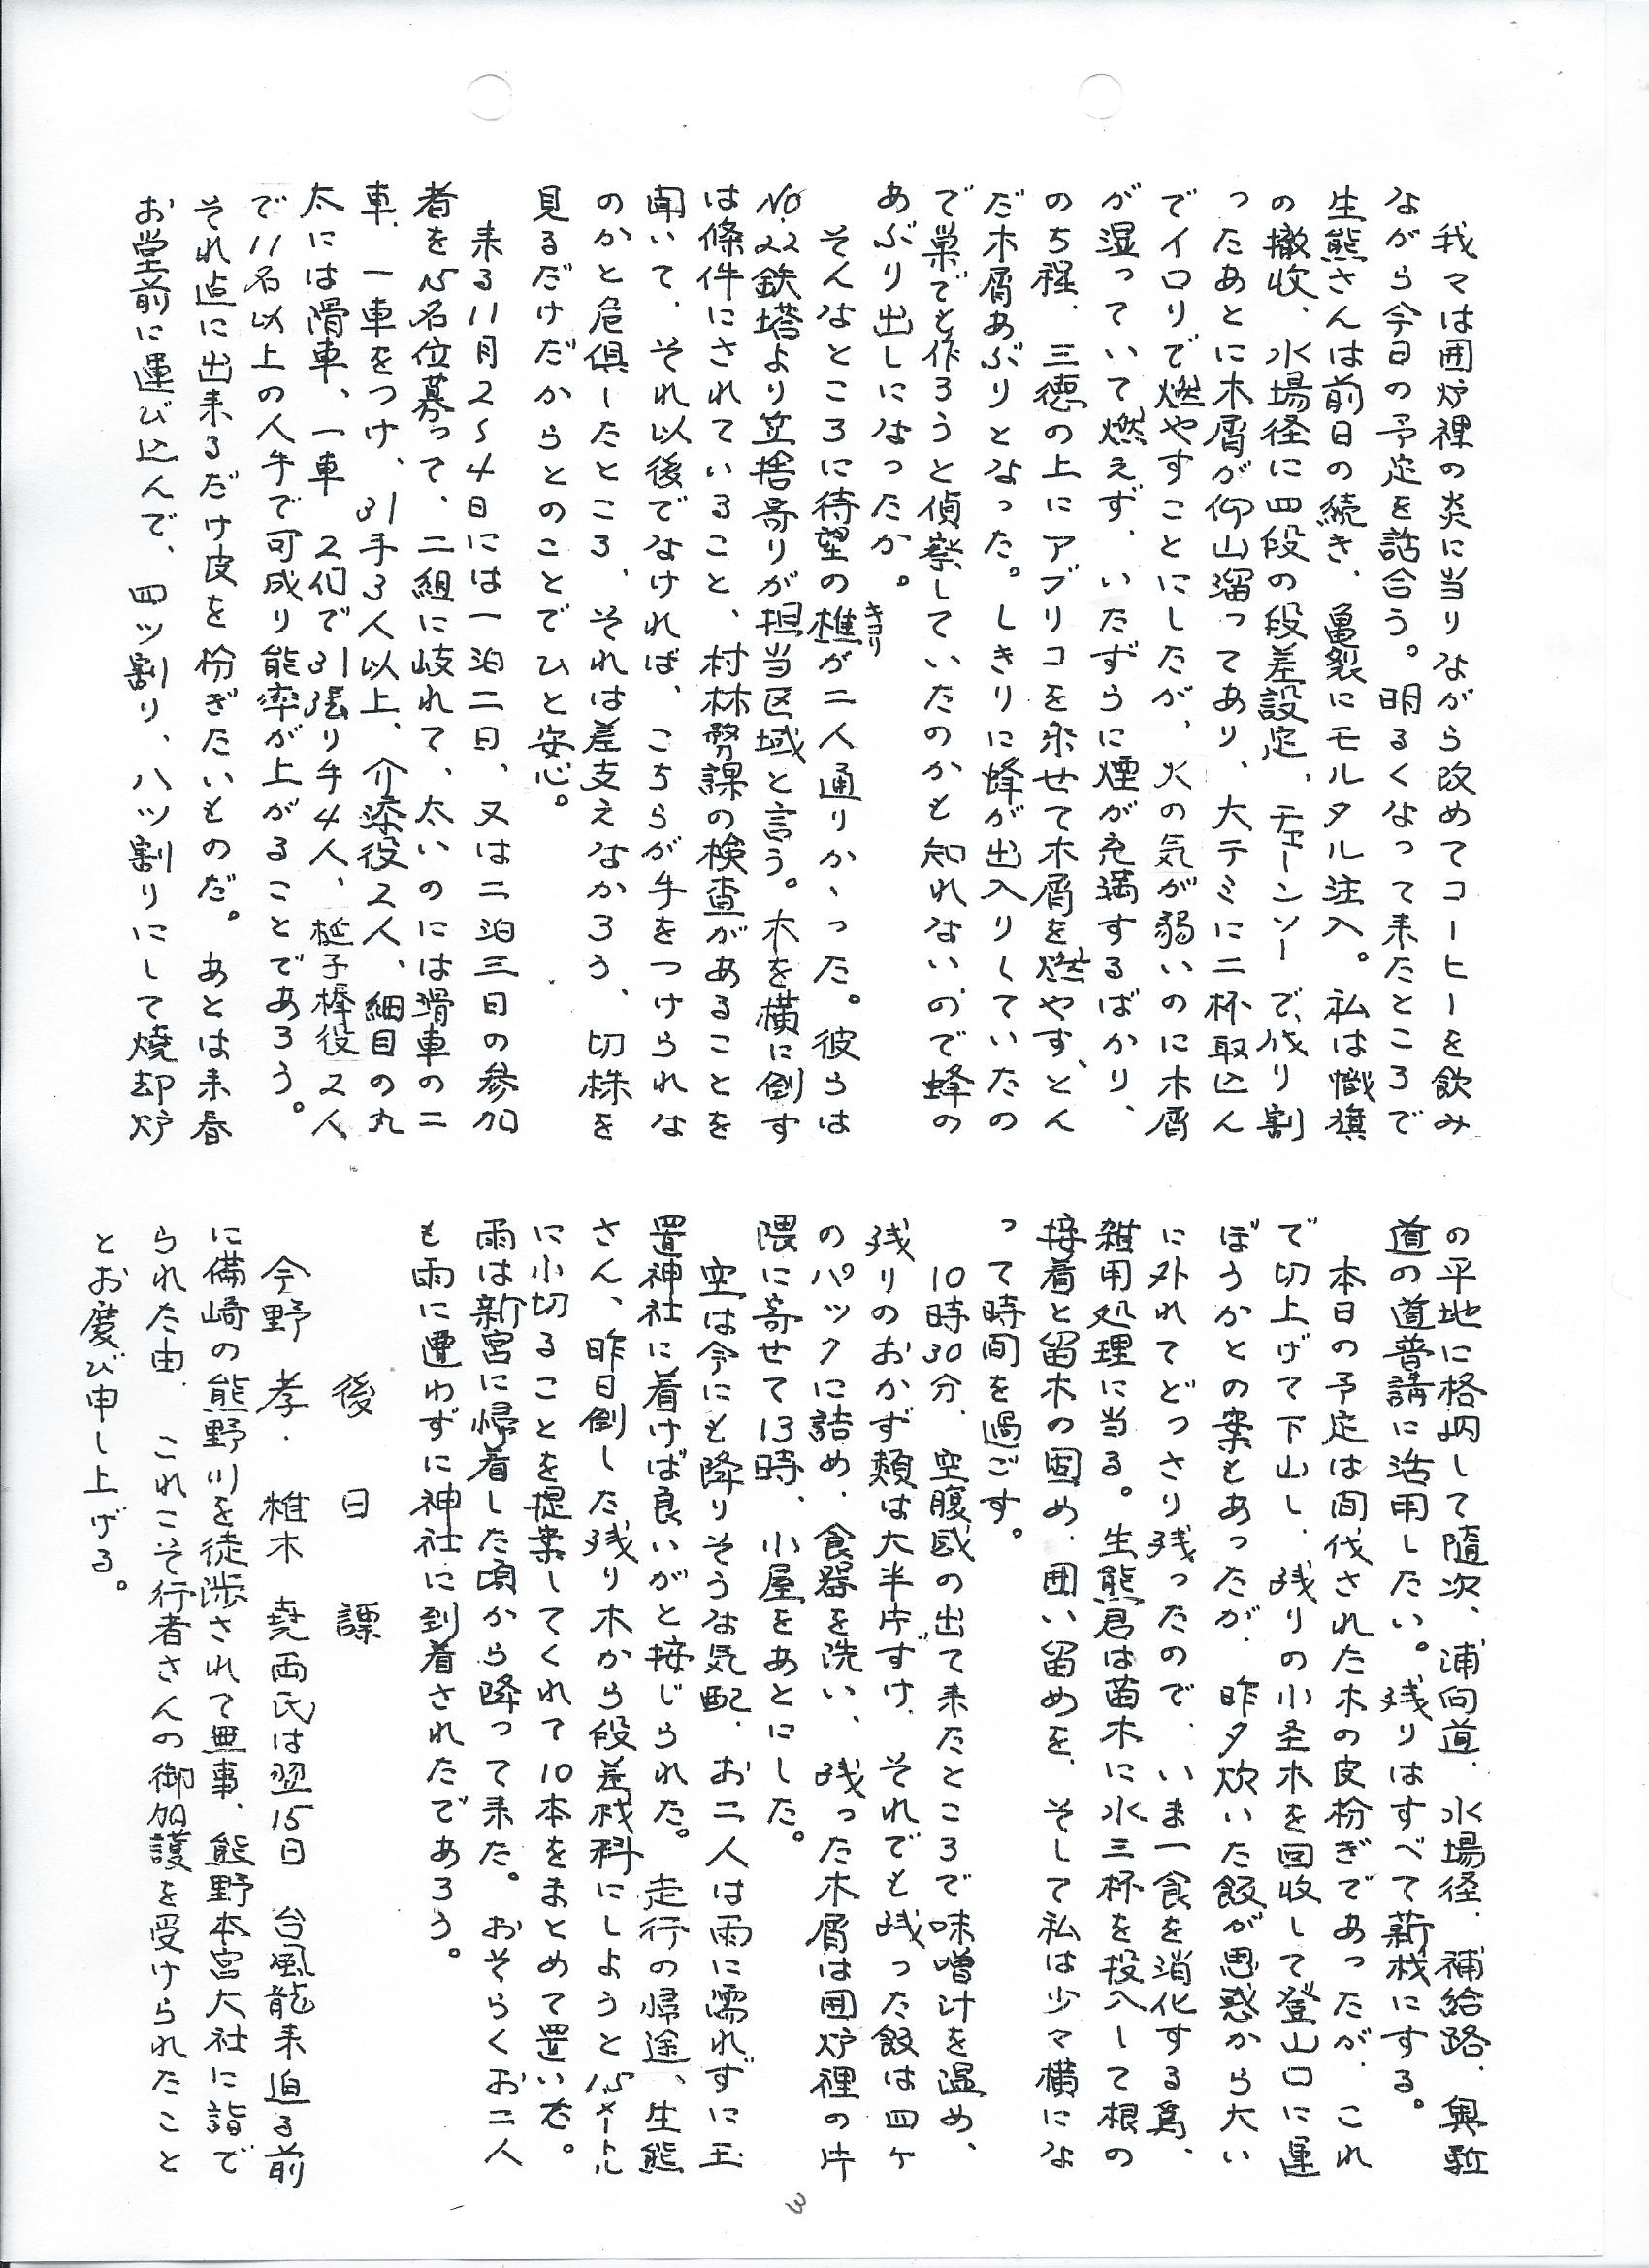 我々は囲炉裡の炎に当りながら改めてコーヒーを飲み
ながら今日の予定を話合う。明るくなって来たところで
生熊さんは前日の続き、亀裂にモルタル注入。私は幟旗
の撤収、水場径に四段の段差設定、チェーンソーで伐り割
ったあとに木屑が仰山溜ってあり、大テミに二杯取込ん
でイロリで燃やすことにしたが、火の気が弱いのに木屑
が湿っていて燃えず、いたずらに煙が充満するばかり、
のち程、三徳の上にアブリコを乗せて木屑を燃やす、とん
だ木屑あぶりとなった。しきりに蜂が出入りしていたの
で巣でも作ろうと偵察していたのかも知れないので蜂の
あぶり出しになったか。
そんなところに待望の樵が二人通りかゝった。彼らは
キコリ
No.22鉄塔より笠捨寄りが担当区域と言う。木を横に倒す
は條件にされていること、村林務課の検査があることを
聞いて、それ以後でなければ、こちらが手をつけられな
のかと危俱したところ、それは差支えなかろう、切株を
見るだけだからとのことでひと安心。
来る11月2〜4日には一泊二日、又は二泊三日の参加
者を15名位募って、二組に岐れて、太いのには滑車の二
車、一車をつけ、引手3人以上、介添役2人、細目の丸
太には滑車、一車 2们で引張り手4人、梃子棒役2人
で11名以上の人手で可成り能率が上がることであろう。
それ迄に出来るだけ皮を枌ぎたいものだ。あとは来春
お堂前に運び込んで、四ッ割り、八ッ割りにして焼却炉
の平地に格納して随次、浦向道、水場径、補給路、奥駈
道の道普請に活用したい。残りはすべて薪材にする。
本日の予定は間伐された木の皮枌ぎであったが、これ
で切上げて下山し、残りの小径木を回収して登山口に運
ぼうかとの案もあったが、昨夕炊いた飯が思惑から大い
に外れてどっさり残ったので、いま一食を消化する為、
雑用処理に当る。生熊君は苗木に水三杯を投入して根の
接着と留木の固め、囲い留めを、そして私は少々横にな
って時間を過ごす。
10時30分、空腹感の出て来たところで味噌汁を温め、
残りのおかず類は大半片ずけ、それでも残った飯は四ヶ
のパックに詰め、食器を洗い、残った木屑は囲炉裡の片
隈に寄せて13時、小屋をあとにした。
空は今にも降りそうな気配、お二人は雨に濡れずに玉
置神社に着けば良いがと按じられた。走行の帰途、生熊
さん、昨日倒した残り木から段差材料にしようと15メートル
に小切ることを提案してくれて10本をまとめて置いた。
雨は新宮に帰着した頃から降って来た。おそらくお二人
も雨に遭わずに神社に到着されたであろう。
後日譚
今野 孝、椎木 堯両氏は翌15日 台風龍来迫る前
に備崎の熊野川を徒渉されて無事、熊野本宮大社に詣で
られた由、これこそ行者さんの御加護を受けられたこと
とお慶び申し上げる。
3